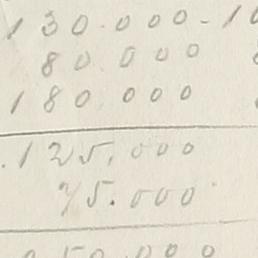 130.000-10
80.000
180.000
125.000
75.000
50.000